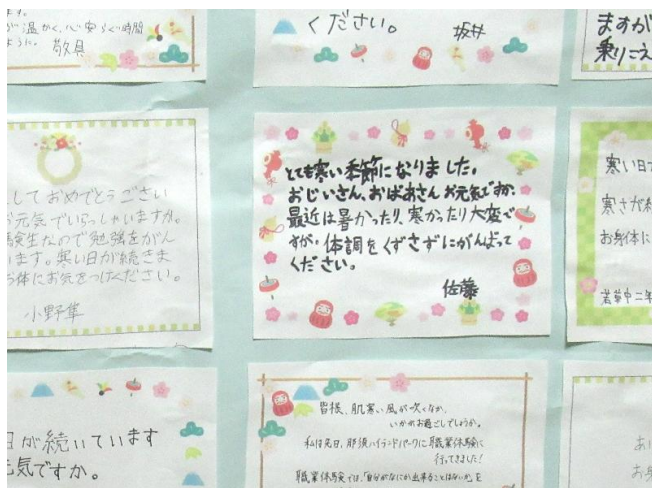 温かく、心安らぐ時間
ように。敬具
ください。
坂井
ますが
乗りこえ
しておめでとうござい
元気でいらっしゃいますか。
験生なので勉強をがん
います。寒い日が続きま
体にお気をつけください。
小野隼
とても寒い季節になりました。
おじいさん、おばあさんお元気ですか。
最近は暑かったり、寒かったり大変で
すが、体調をくずさずにがんばって
ください。
佐藤
寒い日
寒さが
お身体に
若草中二年
日が続いています
元気ですか。
皆様、肌寒い風が吹くなか、
いかがお過ごしでしょうか。
私は先日、那須ハイランドパークに職業体験に
行ってきました！
職業体験では、「自分がなにか出来ることはないか」を
お身